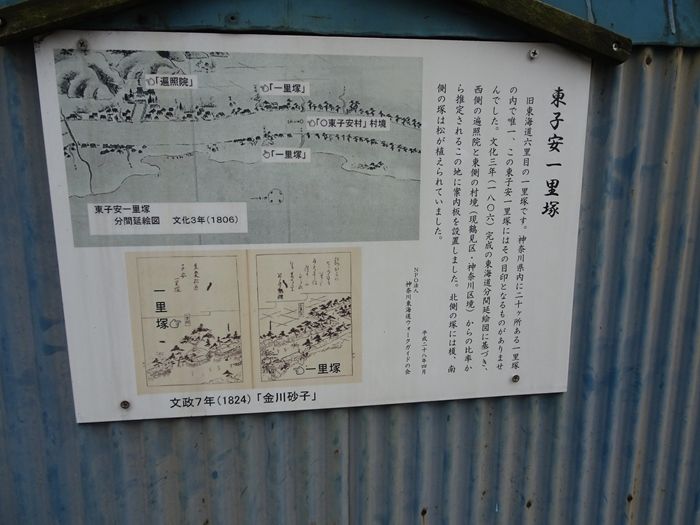 東子安一里塚
旧東海道六里目の一里塚です。神奈川県内に二十ヶ所ある一里塚
の内で唯一、この東子安一里塚にはその目印となるものがありませ
んでした。文化三年(一八〇六)完成の東海道分間延絵図に基づき、
西側の遍照院と東側の村境(現鶴見区・神奈川区境)からの比率か
ら推定されるこの地に案内板を設置しました。北側の塚には榎、南
側の塚は松が植えられていました。
平成二十八年四月
NPO法人
神奈川東海道ウォークガイドの会
「遍照院」
「一里塚」
「〇東子安村」村境
「一里塚」
東子安一里塚
分間延絵図 文化3年(1806)
一里塚
一里塚
文政7年(1824)「金川砂子」